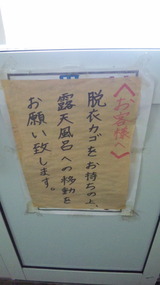 〈お客様へ〉
脱衣カゴをお持ちの上、
露天風呂への移動を
お願い致します。